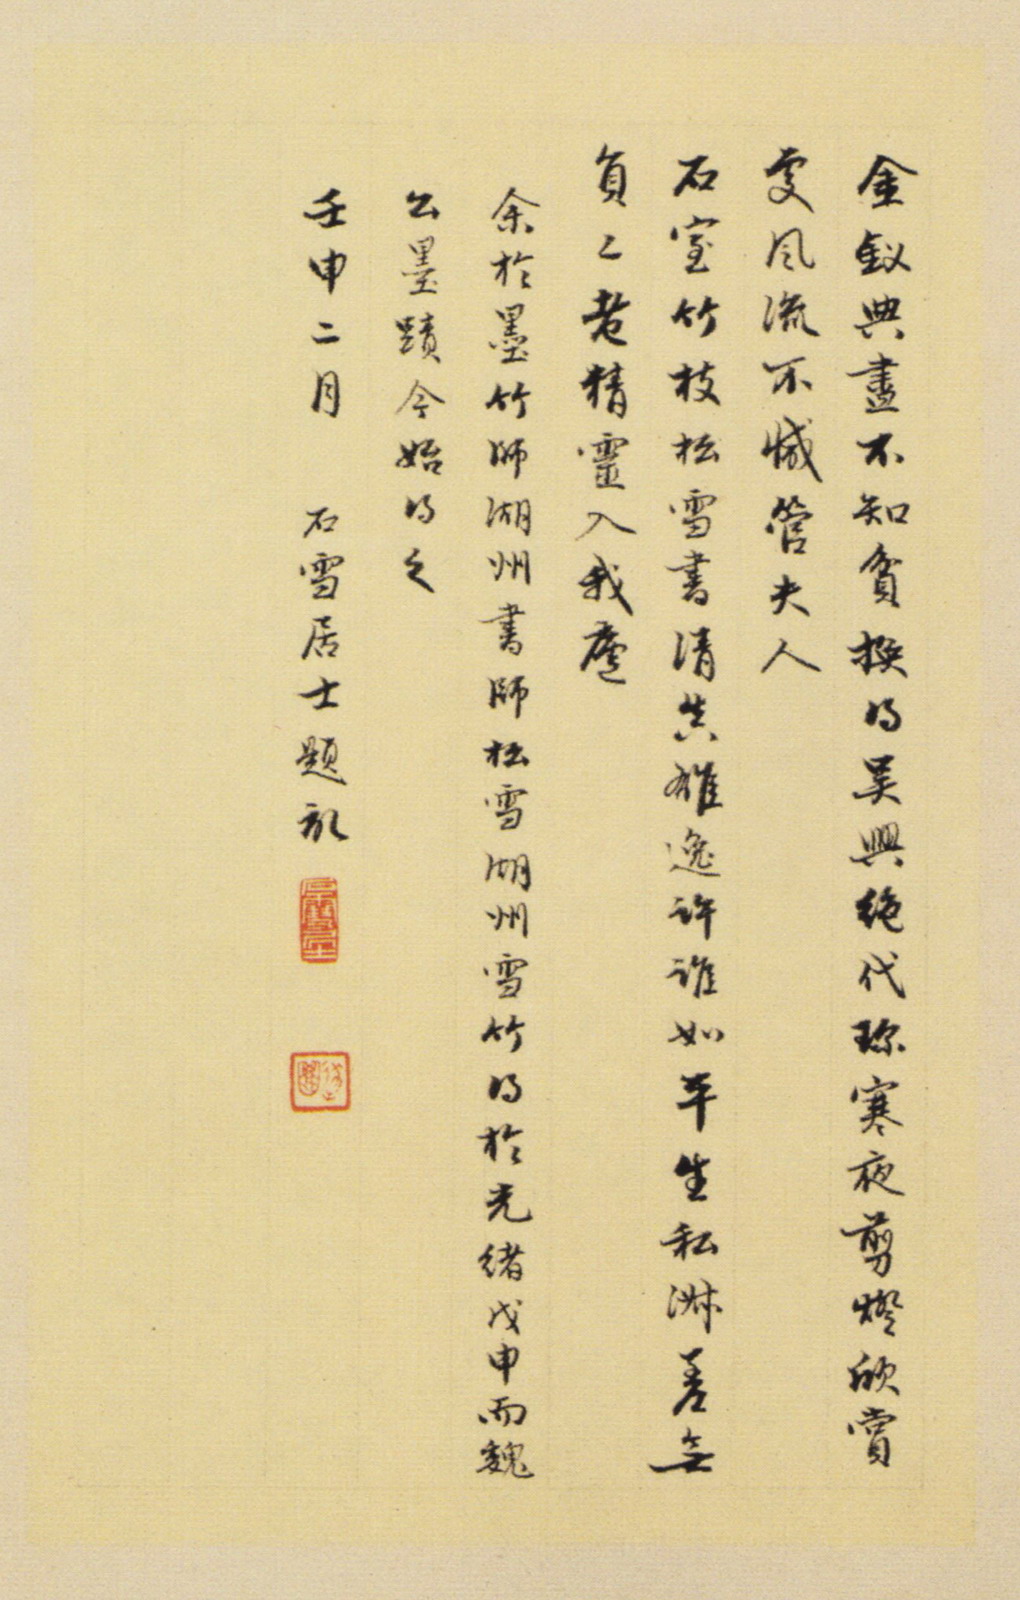 金釵典盡不知貧換得吳興絕代珍寒夜剪燈欣賞
處風流不減管夫人
石室竹枝松雪書清真雄逸許誰如平生私淑差無
負二老精靈入我廬
余於墨竹師湖州書師松雪湖州雪竹得於光緒戊申而魏
公墨蹟今始得之
壬申二月 石雪居士題記
石雪居士